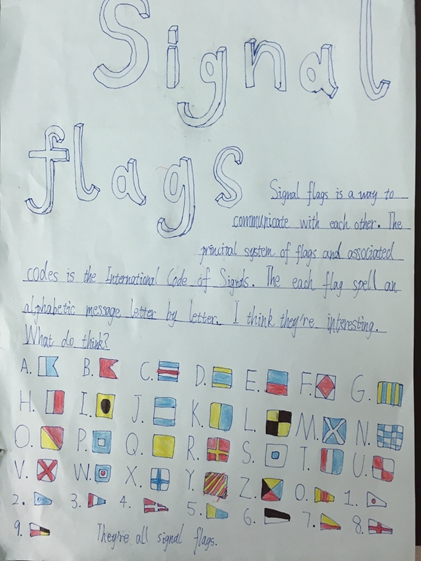 Signal
flags
Signal flags is a way to
communicate with each other. The
principal system of flags and associated
codes is the International Code of Signals. The each flag spell an
alphabetic message letter by letter. I think they're interesting.
What do think?
A. B. C. D. E. F. G.
H. I. J. K. L. M. N.
O. P. Q. R. S. T. U.
V. W. X. Y. Z. 0. 1.
2. 3. 4. 5. 6. 7. 8.
9. They're all signal flags.